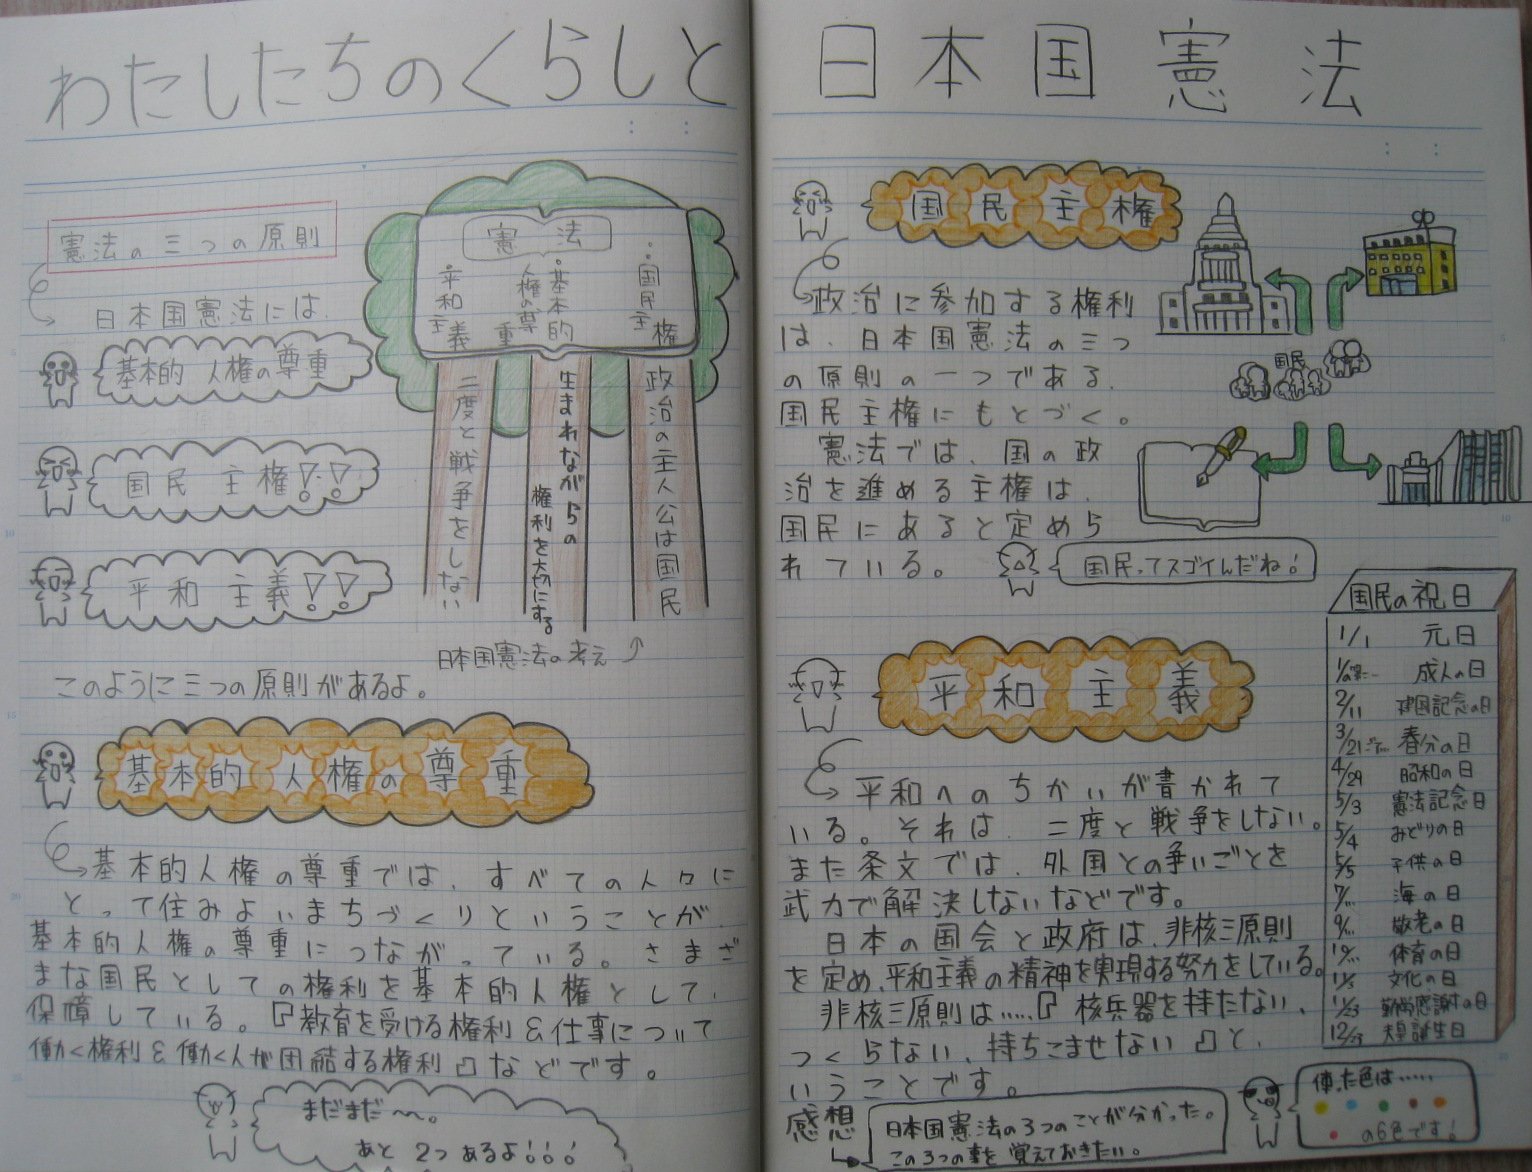 わたしたちのくらしと
日本国憲法
憲法の三つの原則
日本国憲法には、
基本的人権の尊重
国民主権!!
平和主義!!
憲法
・国民主権
・基本的人権の尊重
・平和主義
政治の主人公は国民
生まれながらの
権利を大切にする
二度と戦争をしない
日本国憲法の考え
このように三つの原則があるよ。
基本的人権の尊重
基本的人権の尊重では、すべての人々に
とって住みよいまちづくりということが、
基本的人権の尊重につながっている。さまざ
まな国民としての権利を基本的人権として、
保障している。『教育を受ける権利&仕事について
働く権利&働く人が団結する権利』などです。
まだまだ〜〜。
あと2つあるよ!!!
国民主権
政治に参加する権利
は、日本国憲法の三つ
の原則の一つである、
国民主権にもとづく。
憲法では、国の政
治を進める主権は、
国民にあると定めら
れている。
国民
国民ってスゴイんだね!
平和主義
平和へのちかいが書かれて
いる。それは、二度と戦争をしない。
また条文では、外国との争いごとを
武力で解決しないなどです。
日本の国会と政府は、非核三原則
を定め、平和主義の精神を実現する努力をしている。
非核三原則は……『核兵器を持たない、
つくらない、持ちこませない』と、
いうことです。
国民の祝日
1/1 元日
成人の日
2/11 建国記念の日
3/21 春分の日
4/29 昭和の日
5/3 憲法記念日
5/4 みどりの日
5/5 子供の日
海の日
敬老の日
体育の日
文化の日
11/23 勤労感謝の日
12/23 天皇誕生日
感想
日本国憲法の3つのことが分かった。
この3つの事を覚えておきたい。
使った色は……
の6色です!